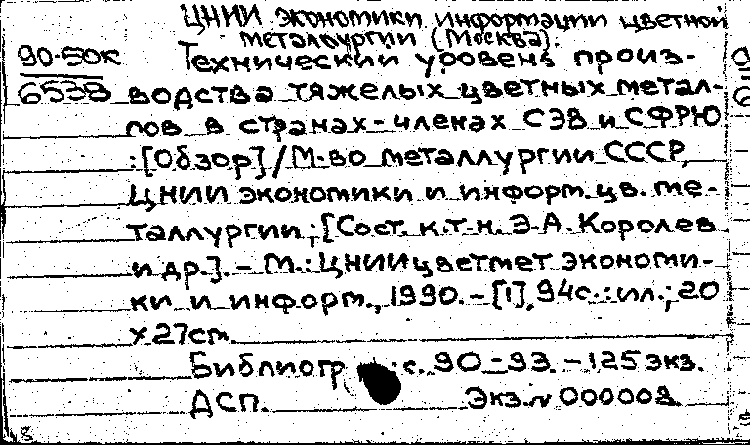 ЦНИИ экономики информации цветной
металлургии (Москва).
90-50к Технический уровень произ-
6538 водства тяжелых цветных метал-
лов в странах-членах СЭВ и СФРЮ
:[Обзор]/М-во металлургии СССР,
ЦНИИ экономики и информ. цв. ме-
таллургии; [Сост. к.т.н. Э.А. Королев
и др.]. - М.: ЦНИИцветмет экономи-
ки и информ., 1990. - [1], 94с.: ил.; 20
х 27cm.
Библиогр : с. 90-93. - 125 экз.
ДСП. Экз. N 000002.